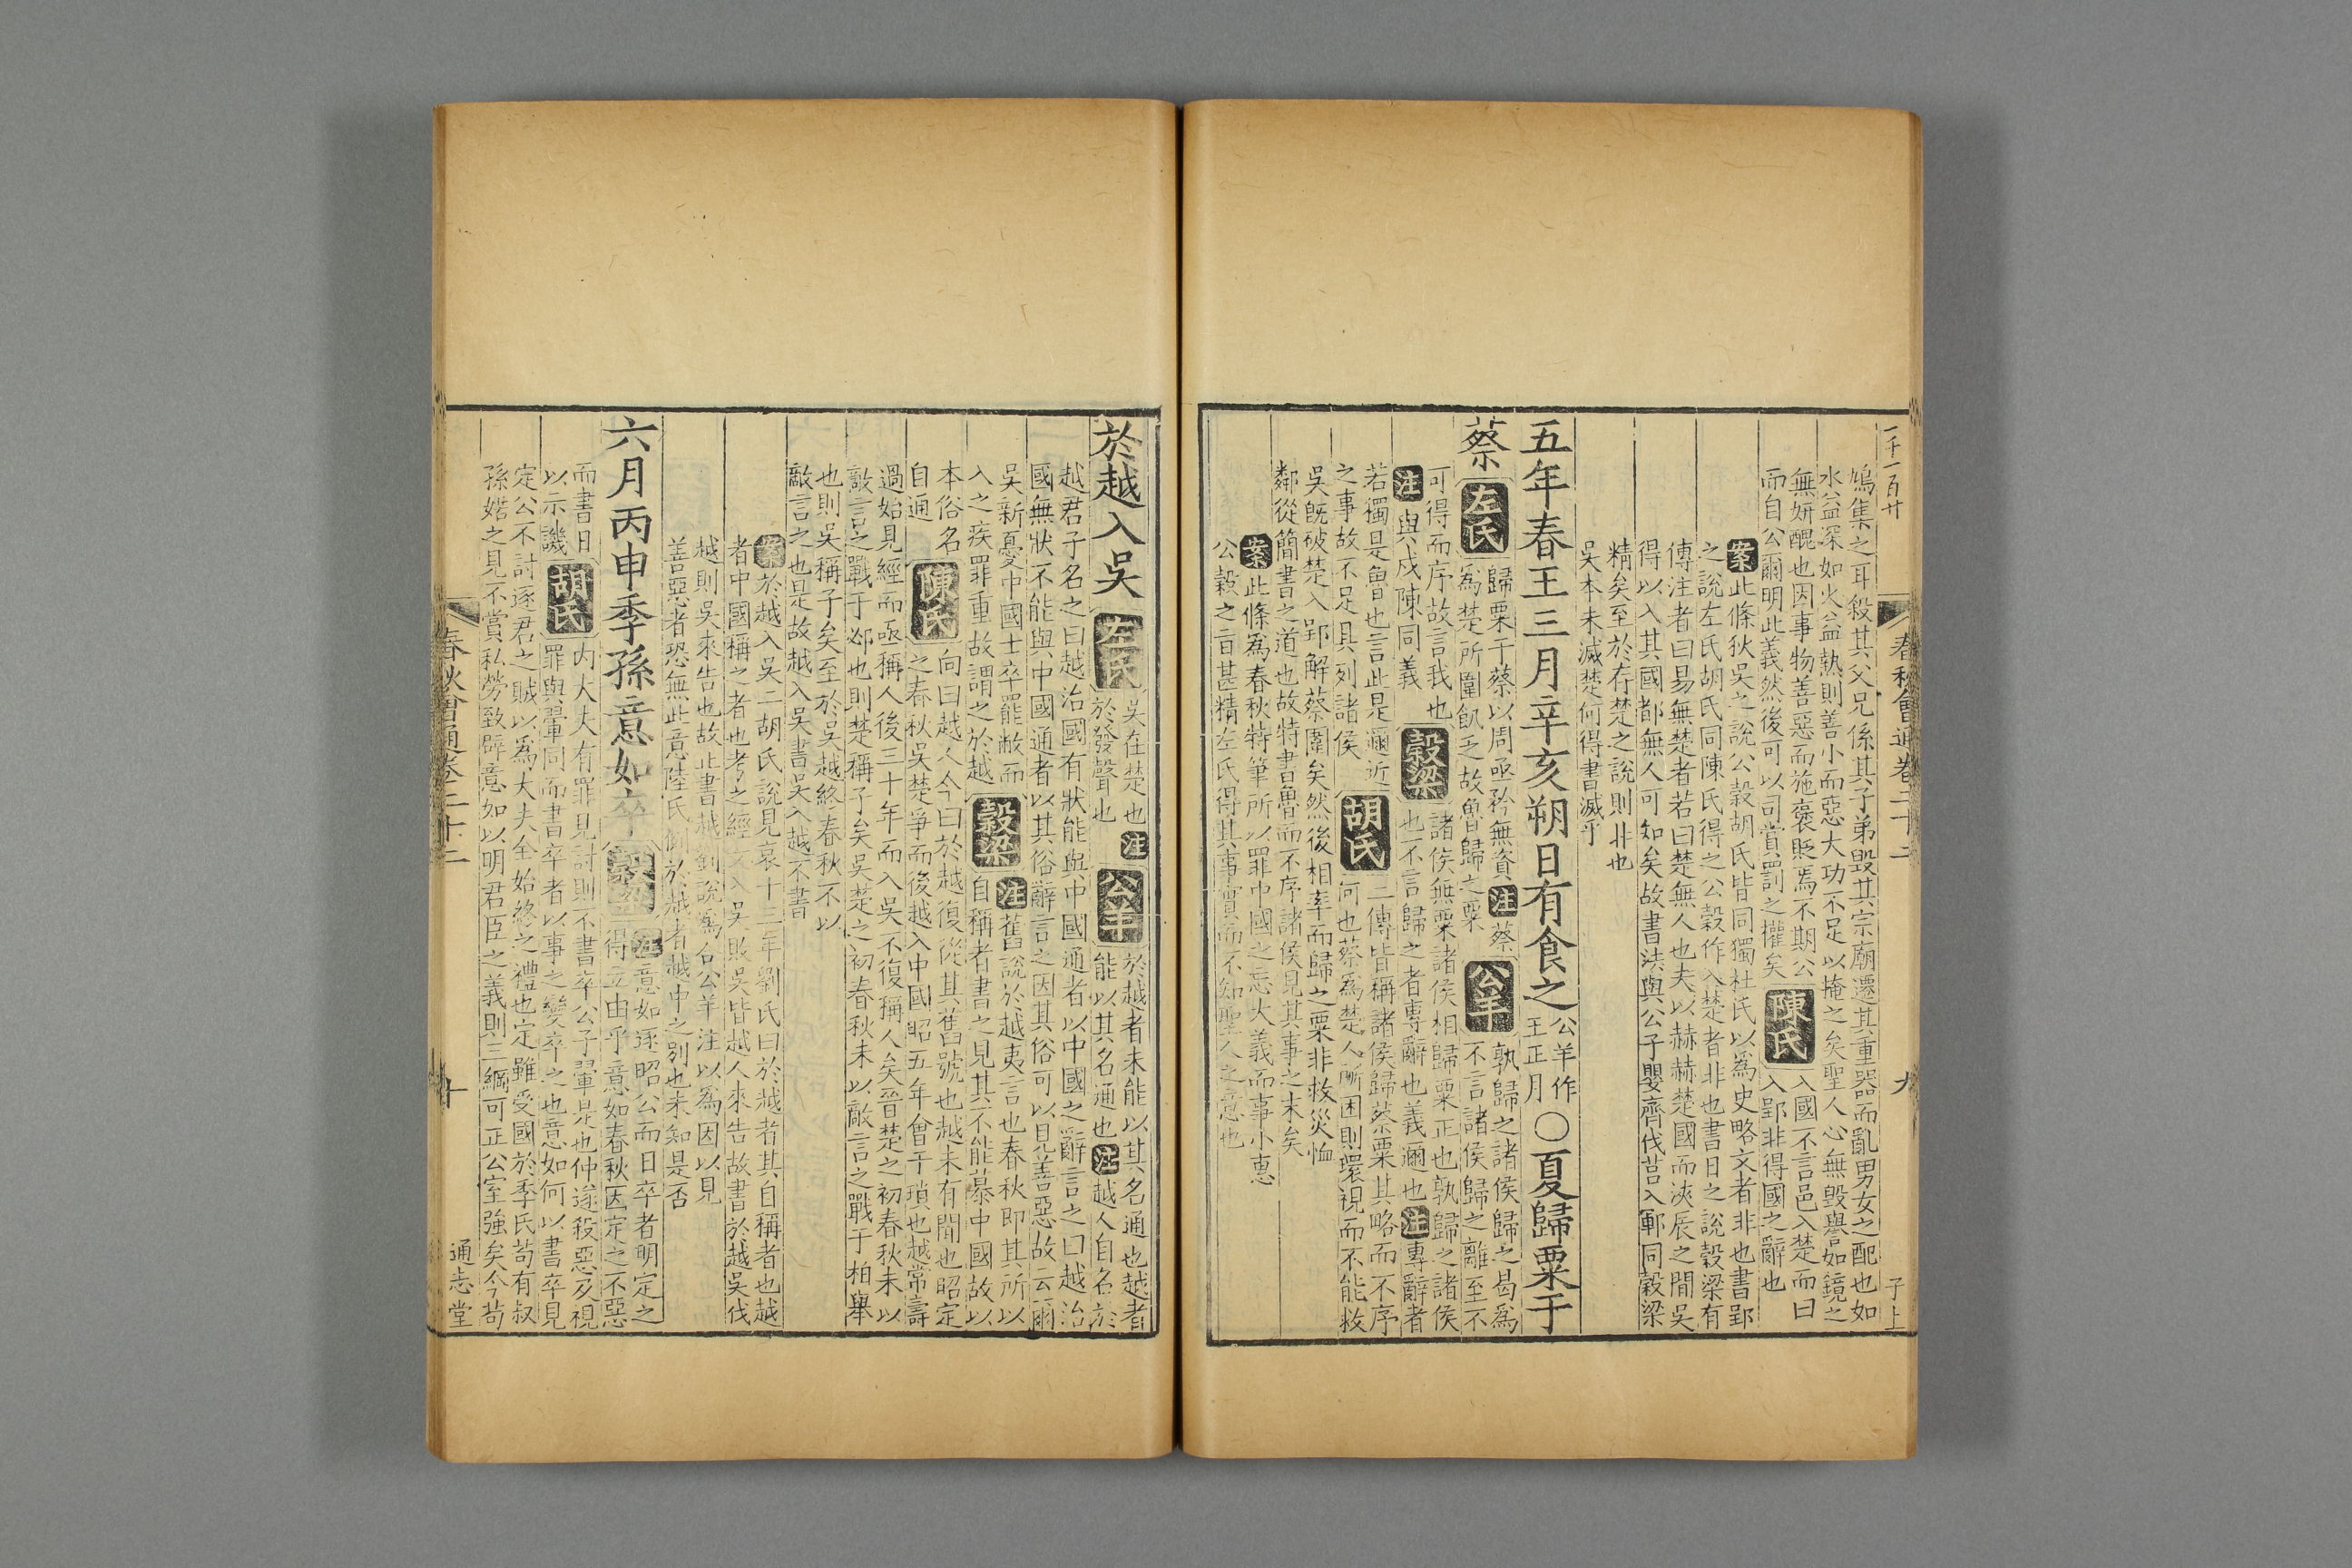 一千一百廿 春秋會通卷二十二 九 子上
鳩集之耳殺其父兄係其子弟毀其宗廟遷其重器而亂男女之配也如
水益深如火益熱則善小而惡大功不足以掩之矣聖人心無毀譽如鏡之
無妍醜也因事物善惡而施褒貶焉不期公
而自公爾明此義然後可以司賞罰之權矣
陳氏
入國不言邑入楚而曰
入郢非得國之辭也
案此條狄吳之說公穀胡氏皆同獨杜氏以為史略文者非也書郢
之說左氏胡氏同陳氏得之公穀作入楚者非也書日之說穀梁有
傳注者曰易無楚者若曰楚無人也夫以赫赫楚國而浹辰之間吳
得以入其國都無人可知矣故書法與公子嬰齊伐莒入鄆同穀梁
精矣至於存楚之說則非也
吳本未滅楚何得書滅乎
五年春王三月辛亥朔日有食之
公羊作
王正月
○夏歸粟于
蔡
左氏
歸粟于蔡以周亟矜無資注蔡
為楚所圍飢乏故魯歸之粟
公羊
孰歸之諸侯歸之曷為
不言諸侯歸之離至不
可得而序故言我也
注與戍陳同義
穀梁
諸侯無粟諸侯相歸粟正也孰歸之諸侯
也不言歸之者專辭也義邇也注專辭者
若獨是魯也言此是邇近
之事故不足具列諸侯
胡氏
二傳皆稱諸侯歸蔡粟其略而不序
何也蔡為楚人所困則環視而不能救
吳旣破楚入郢解蔡圍矣然後相率而歸之粟非救災恤
鄰從簡書之道也故特書魯而不序諸侯見其事之末矣
案此條為春秋特筆所以罪中國之忘大義而事小惠
公穀之言甚精左氏得其事實而不知聖人之意也
於越入吳
左氏
吳在楚也注
於發聲也
公羊
於越者未能以其名通也越者
能以其名通也注越人自名於
越君子名之曰越治國有狀能與中國通者以中國之辭言之曰越治
國無狀不能與中國通者以其俗辭言之因其俗可以見善惡故云爾
吳新憂中國士卒罷敝而
入之疾罪重故謂之於越
穀梁
注舊說於越夷言也春秋即其所以
自稱者書之見其不能慕中國故以
本俗名
自通
陳氏
向曰越人今曰於越復從其舊號也越未有聞也昭定
之春秋吳楚爭而後越入中國昭五年會于瑣也越常壽
過始見經而亟稱人後三十年而入吳不復稱人矣晉楚之初春秋未以
敵言之戰于邲也則楚稱子矣吳楚之初春秋未以敵言之戰于柏舉
也則吳稱子矣至於吳越終春秋不以
敵言之也是故越入吳書吳入越不書
案於越入吳二胡氏說見哀十三年劉氏曰於越者其自稱者也越
者中國稱之者也考之經入吳敗吳皆越人來告故書於越吳伐
越則吳來告也故止書越劉說為合公羊注以為因以見
善惡者恐無此意陸氏例於越者越中之別也未知是否
六月丙申季孫意如卒
穀梁
注意如逐昭公而日卒者明定之
得立由乎意如春秋因定之不惡
而書日
以示譏
胡氏
内大夫有罪見討則不書卒公子翬是也仲遂殺惡及視
罪與翬同而書卒者以事之變卒之也意如何以書卒見
定公不討逐君之賊以為大夫全始終之禮也定雖受國於季氏苟有叔
孫婼之見不賞私勞致辟意如以明君臣之義則三綱可正公室強矣今苟
春秋會通卷二十二 十 通志堂